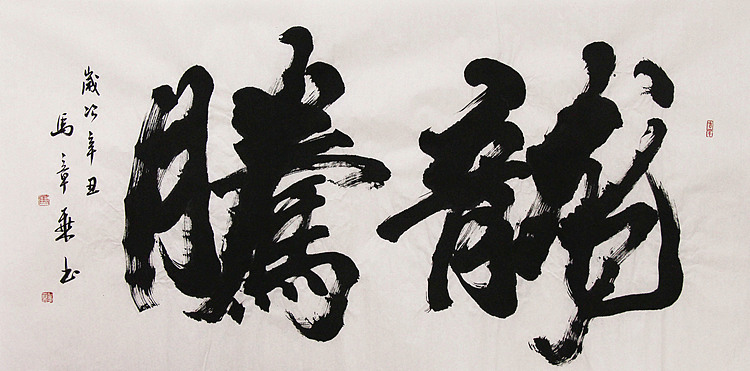 龍騰
歲次辛丑
馬章乘書